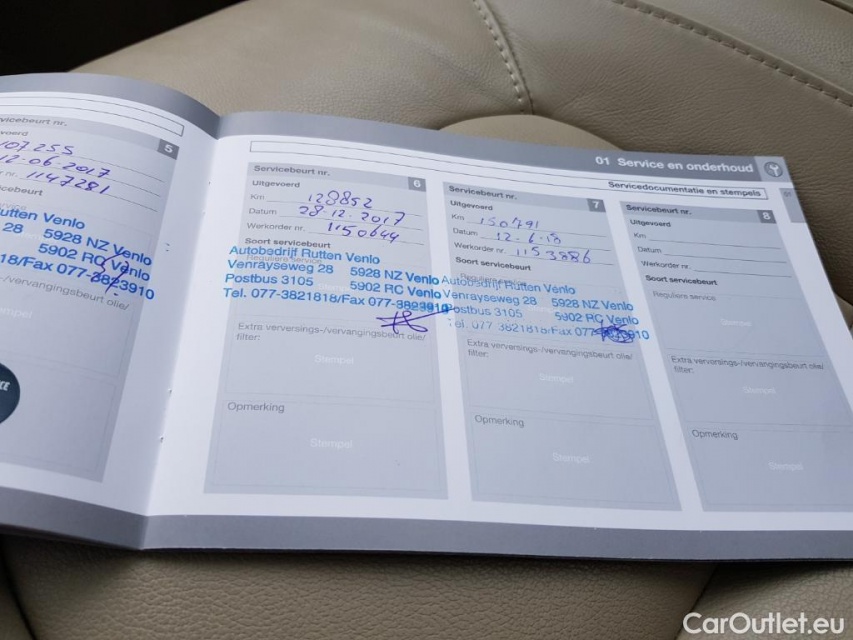 Servicebeurt nr.
5
107255
12-06-2017
1147281
Rutten Venlo
28 5928 NZ Venlo
5902 RC Venlo
18/Fax 077-3823910
-/vervangingsbeurt olie/
01 Service en onderhoud
Servicedocumentatie en stempels
Servicebeurt nr.
6
Uitgevoerd
Km 128852
Datum 28-12-2017
Werkorder nr. 1150644
Soort servicebeurt
Reguliere service
Autobedrijf Rutten Venlo
Venrayseweg 28 5928 NZ Venlo
Postbus 3105 5902 RC Venlo
Tel. 077-3821818/Fax 077-3823910
Extra verversings-/vervangingsbeurt olie/
filter:
Stempel
Opmerking
Stempel
Servicebeurt nr.
7
Uitgevoerd
Km 150791
Datum 12-6-18
Werkorder nr. 1153886
Soort servicebeurt
Reguliere service
Autobedrijf Rutten Venlo
Venrayseweg 28 5928 NZ Venlo
Postbus 3105 5902 RC Venlo
Tel. 077 3821818/Fax 077-3823910
Extra verversings-/vervangingsbeurt olie/
filter:
Stempel
Opmerking
Stempel
Servicebeurt nr.
8
Uitgevoerd
Km
Datum
Werkorder nr.
Soort servicebeurt
Reguliere service
Stempel
Extra verversings-/vervangingsbeurt olie/
filter:
Stempel
Opmerking
Stempel
CarOutlet.eu